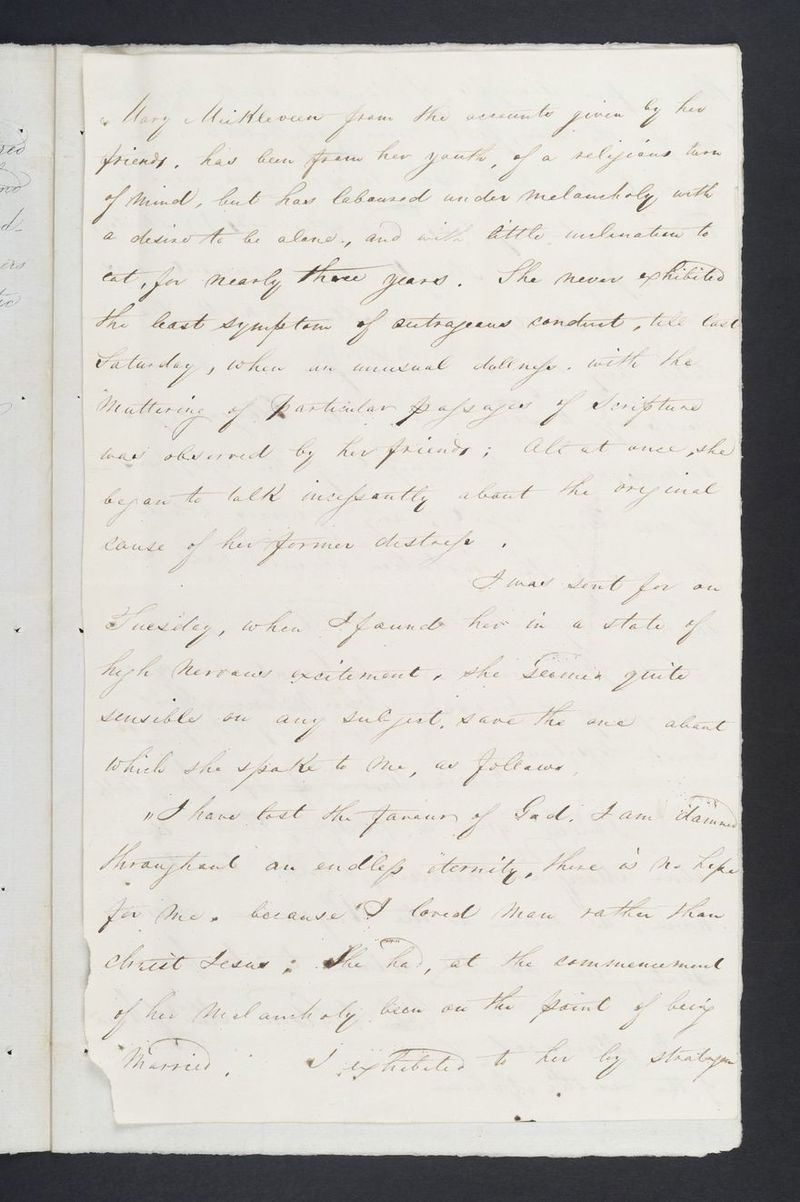 Mary MicKleveen from the accounts given by her
friends, has been from her youth, of a religious turn
of mind, but has laboured under melancholy with
a desire to be alone, and with little inclination to
eat, for nearly three years. She never exhibited
the least symptom of outrageous conduct, till last
Saturday, when an unusual dullness, with the
muttering of particular passages of Scripture
was observed by her friends; All at once, she
began to talk incessantly about the original
cause of her former distress.
I was sent for on
Tuesday, when I found her in a state of
high nervous excitement, she seemed quite
sensible on any subject, save the one about
which she spoke to me, as follows,
"I have lost the favour of God. I am damned
throughout an endless eternity, there is no hope
for me, because I loved man rather than
Christ Jesus; She had, at the commencement
of her melancholy been on the point of being
Married. I exhibited to her by stratagem